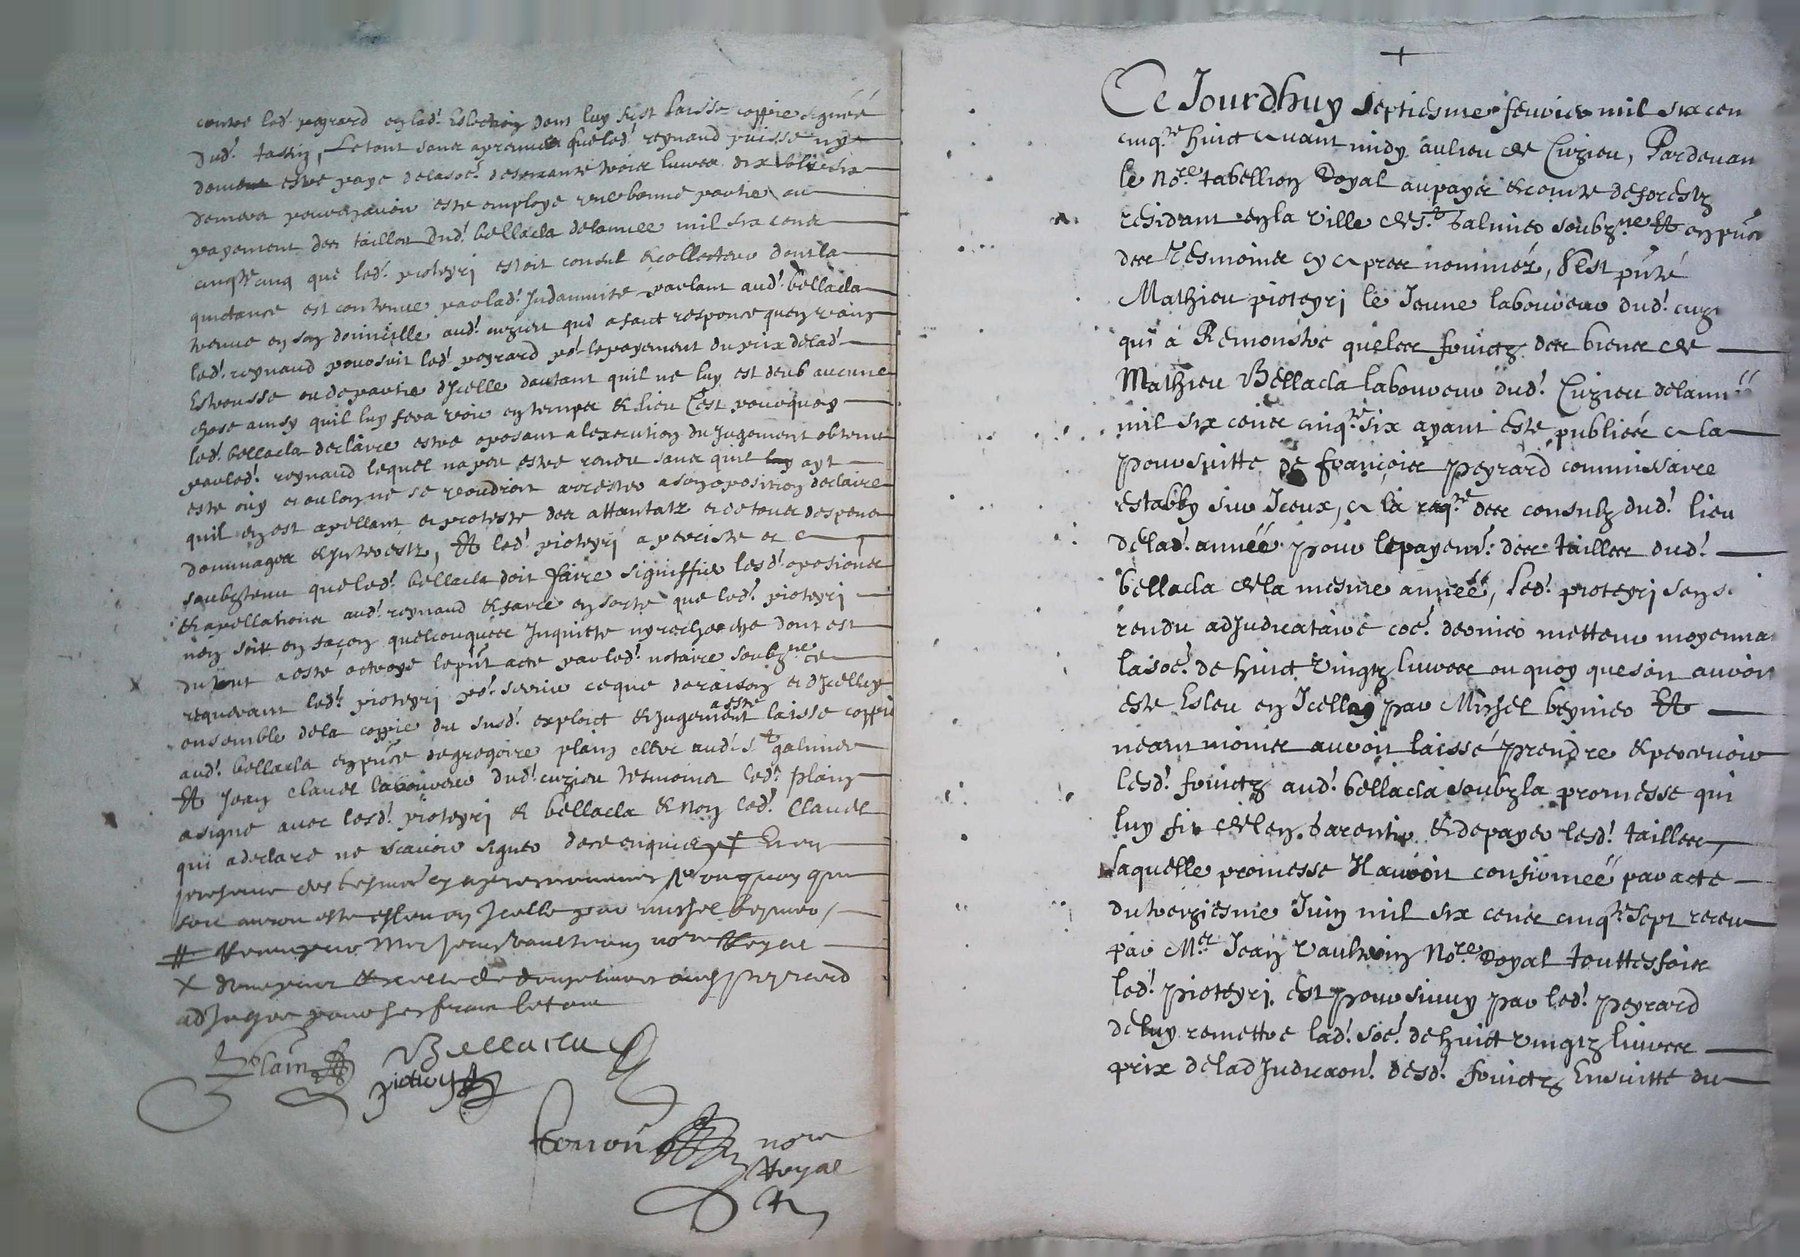 contre led. peyrard en lad. Eslection dont luy s'est laisse coppie signée
dud. tassin, Le tout sans aprouver que led. reynaud puisse ny
estre paye de la soe. de soixante trois livres dix
pouvoir avoir esté employé une bonne partie au
payement des tailles dud. bellacla de lannee mil six cens
cinqte cinq que led. pioteyri estoit consul & collecteur dont la
quictance est contenue par lad. Indamnité parlant aud. bellacla
treuve en son domicille aud. cuzieu qui a faict responce quen vain
led. reynaud poursuit led. peyrard pr. le payement du prix de lad.
Estrousse ou de partie d'Icelle dautant quil ne luy est deub aucune
chose ainsy quil luy fera voir en temps & lieu C'est pourquoy
led. bellacla declaire estre oposant a lexecution du Jugement obtenu
par led. reynaud lequel na peu estre rendu sans quil ayt
esté ouy et ou lon ne se voudroit arrester a son oposition declaire
quil en est apellant et proteste des attantatz et de tous despens
dommages & Intrestz, Et led. pioteyri a perciste et
soubztenu que led. bellacla doit faire signiffier lesd. oposiones
& apellationes aud. reynaud & faire en sorte que led. pioteyri
non soit en façon quelconques Inquiete ny recherche dont est
du tout a este octroye le pnt acte par led. notaire soubzne ce
requerant led. pioteyri pr. servir ce que de raison et d'Icelluy
ensemble de la coppie du susd. exploict & Jugement a esté laisse coppie
aud. bellacla en pnce de gregoire plain clerc aud. St galmier
Et Jean Claude laboureur dud. cuzieu tesmoins led. plain
a signe avec lesd. pioteyri & bellacla & non led. Claude
qui a declaré ne scavoir signer de ce enquis Et en
presence des tesmoins cy apres nommes ou quoy que
soit auroit esté esleu en Icelle par mishel beynier
par Mre Jean Vaultrain nore Royal
peyrard
adjugee pour ses frais le tout
Plain
Bellacla
pioteyri
nore
Royal
Ce Jourdhuy septiesme febvrier mil six cen
cinqte huict avant midy au lieu de Cuzieu, Pardevan
le Nore tabellion Royal au pays & comte de forestz
residant en la ville de St. Galmier soubzne Et en pnce
des Tesmoins cy apres nommez, S'est pnté
Mathieu pioteyri le Jeune laboureur dud. cuzi
qui a Remonstré que les fruictz des biens de
Mathieu Bellacla laboureur dud. Cuzieu de lann
mil six cens cinqte six ayant esté publiés a la
poursuitte de françois peyrard commissaire
establY sur Iceux, a la reqte des consulz dud. lieu
de lad. année pour le payemt. des tailles dud.
bellacla de la mesme année, Led. pioteyri sen s.
rendu adJudicataire coe. dernier metteur moyenna
la soe. de huict vingtz livres ou quoy que soit auroit
esté Esleu en Icelle par Mishel beynier Et
neantmoins auroit laissé prendre & percevoir
lesd. fruictz aud. bellacla soubz la promesse qui
luy fit de len garentir & de payer lesd. tailles,
Laquelle promesse Il auroit confirmée par acte
du treziesme Juin mil six cens cinqte sept receu
par Mre Jean Vaultrain Nore Royal touttesfois
led. pioteyri est poursuivy par led. peyrard
de luy remettre lad. soe. de huict vingtz livres
prix de ladJudicaon. desd. fruictz Ensuitte du